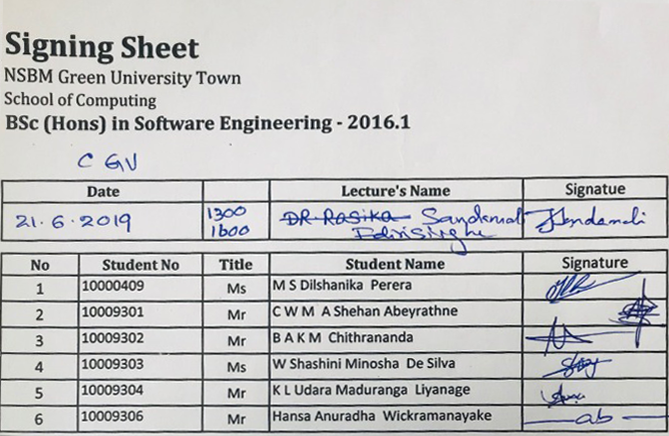 Signing Sheet
NSBM Green University Town
School of Computing
BSc (Hons) in Software Engineering - 2016.1
C GV
Date Lecture's Name Signatue
21.6.2019 1300 DR Rasika Sandamal
1600 Edirisinghe
No Student No Title Student Name Signature
1 10000409 Ms M S Dilshanika Perera
2 10009301 Mr C W M A Shehan Abeyrathne
3 10009302 Mr B A K M Chithrananda
4 10009303 Ms W Shashini Minosha De Silva
5 10009304 Mr K L Udara Maduranga Liyanage
6 10009306 Mr Hansa Anuradha Wickramanayake ab